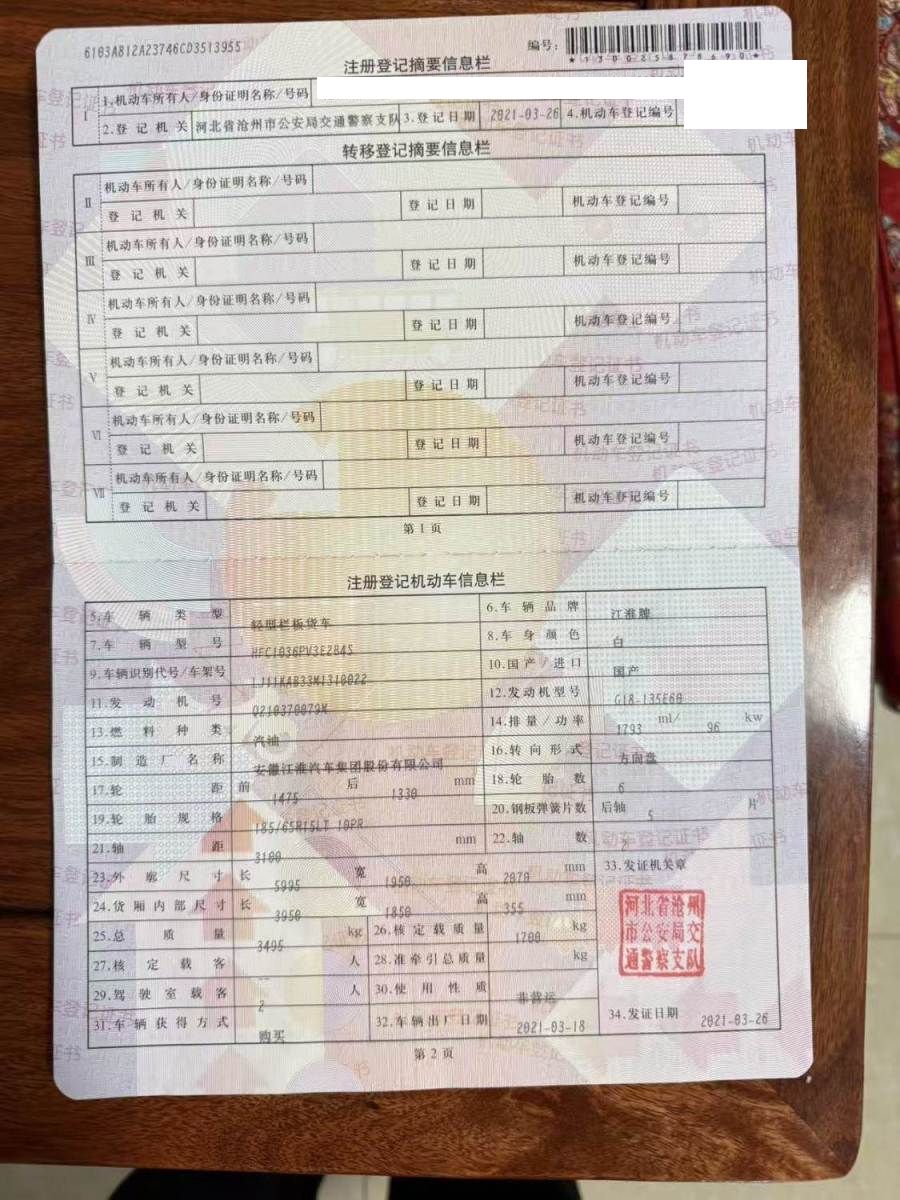 6103AB12A23746CD3513955
编号:
*130025676690*
注册登记摘要信息栏
I 1.机动车所有人/身份证明名称/号码
2.登记机关 河北省沧州市公安局交通警察支队 3.登记日期 2021-03-26 4.机动车登记编号
转移登记摘要信息栏
II 机动车所有人/身份证明名称/号码
登记机关 登记日期 机动车登记编号
III 机动车所有人/身份证明名称/号码
登记机关 登记日期 机动车登记编号
IV 机动车所有人/身份证明名称/号码
登记机关 登记日期 机动车登记编号
V 机动车所有人/身份证明名称/号码
登记机关 登记日期 机动车登记编号
VI 机动车所有人/身份证明名称/号码
登记机关 登记日期 机动车登记编号
VII 机动车所有人/身份证明名称/号码
登记机关 登记日期 机动车登记编号
第1页
注册登记机动车信息栏
5.车辆类型 轻型栏板货车 6.车辆品牌 江淮牌
7.车辆型号 HFC1036PV3E2B4S 8.车身颜色 白
9.车辆识别代号/车架号 LJ11KAB33M1310022 10.国产/进口 国产
11.发动机号 Q210370079K 12.发动机型号 G18-135E60
13.燃料种类 汽油 14.排量/功率 1793 ml/ 96 kw
15.制造厂名称 安徽江淮汽车集团股份有限公司 16.转向形式 方向盘
17.轮距 前 1475 后 1330 mm 18.轮胎数 6
19.轮胎规格 185/65R15LT 10PR 20.钢板弹簧片数 后轴 5 片
21.轴距 3100 mm 22.轴数 2
23.外廓尺寸 长 5995 宽 1950 高 2070 mm 33.发证机关章
24.货厢内部尺寸 长 3950 宽 1850 高 355 mm
25.总质量 3495 kg 26.核定载质量 1700 kg
27.核定载客 -- 人 28.准牵引总质量 kg
29.驾驶室载客 2 人 30.使用性质 非营运
31.车辆获得方式 购买 32.车辆出厂日期 2021-03-18 34.发证日期 2021-03-26
河北省沧州
市公安局交
通警察支队
第2页